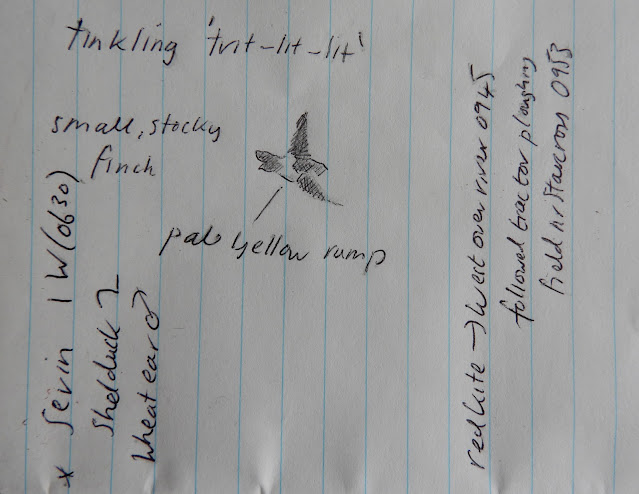 tinkling 'trit-lit-lit'
small, stocky
finch
pale yellow rump
* Serin 1 W (0630)
Shelduck 2
Wheatear ♂
red kite → West over river 0945
followed tractor ploughing
field nr Starcross 0953